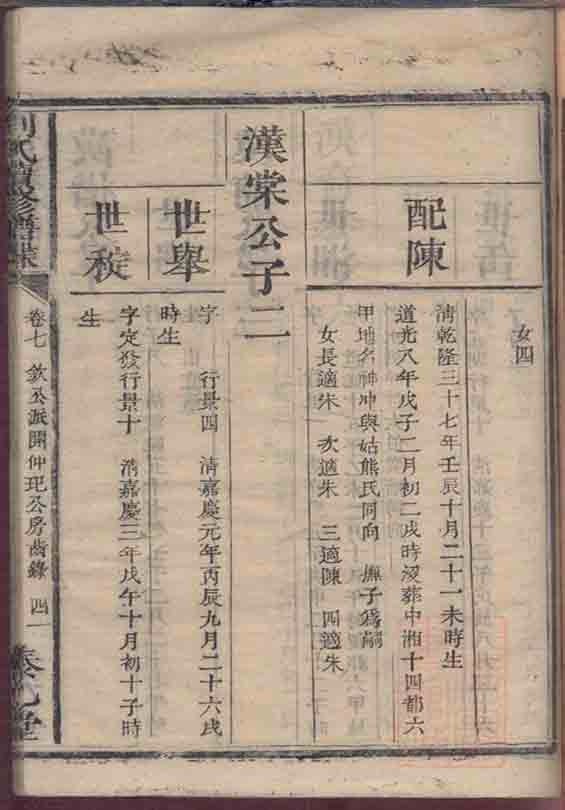 女四
配陳
清乾隆三十七年壬辰十月二十一未時生
道光八年戊子二月初二戌時歿葬中湘十四都六
甲地名神冲與姑熊氏同向　撫子爲嗣
女長適朱　次適朱　三適陳　四適朱
漢棠公子二
世舉
字　行景四　清嘉慶元年丙辰九月二十六戌
時生
世稅
字定發行景十　清嘉慶三年戊午十月初十子時
生
劉氏續修譜牒
卷七　欽公派開仲玘公房齒錄　四一